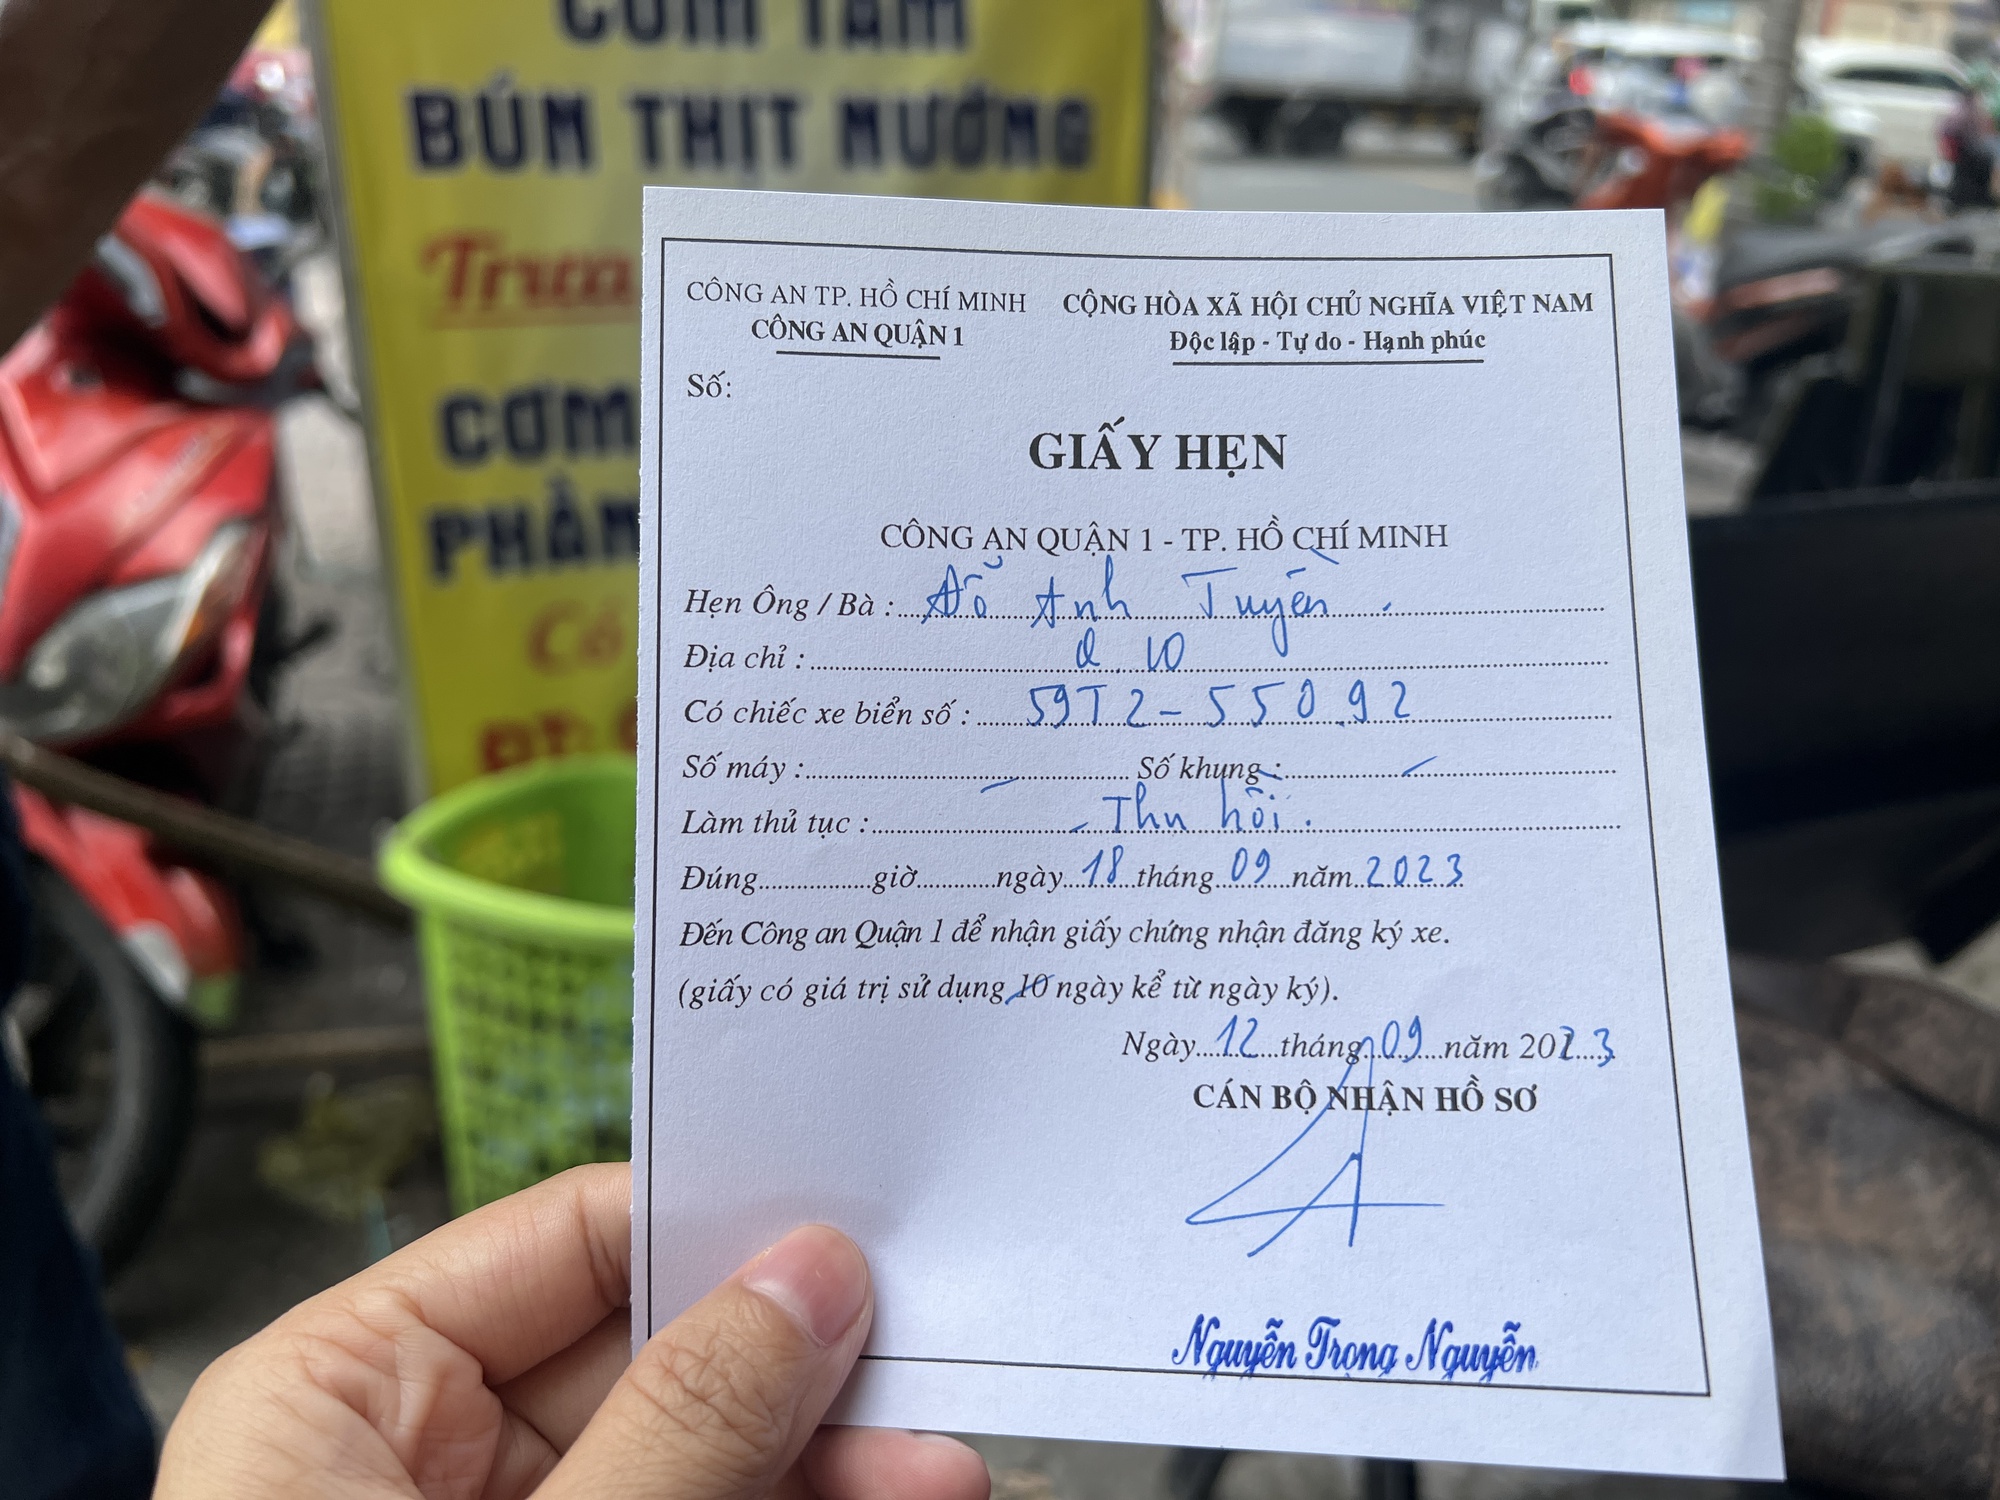 CƠM TẤM
BÚN THỊT NƯỚNG
Trưa
CƠM
PHẦN
Có
ĐT:
CÔNG AN TP. HỒ CHÍ MINH
CÔNG AN QUẬN 1
CỘNG HÒA XÃ HỘI CHỦ NGHĨA VIỆT NAM
Độc lập - Tự do - Hạnh phúc
Số:
GIẤY HẸN
CÔNG AN QUẬN 1 - TP. HỒ CHÍ MINH
Hẹn Ông / Bà : Đỗ Anh Tuyến
Địa chỉ : Q.10
Có chiếc xe biển số : 59T2-550.92
Số máy : Số khung :
Làm thủ tục : Thu hồi.
Đúng giờ ngày 18 tháng 09 năm 2023
Đến Công an Quận 1 để nhận giấy chứng nhận đăng ký xe.
(giấy có giá trị sử dụng 10 ngày kể từ ngày ký).
Ngày 12 tháng 09 năm 2023
CÁN BỘ NHẬN HỒ SƠ
Nguyễn Trọng Nguyễn